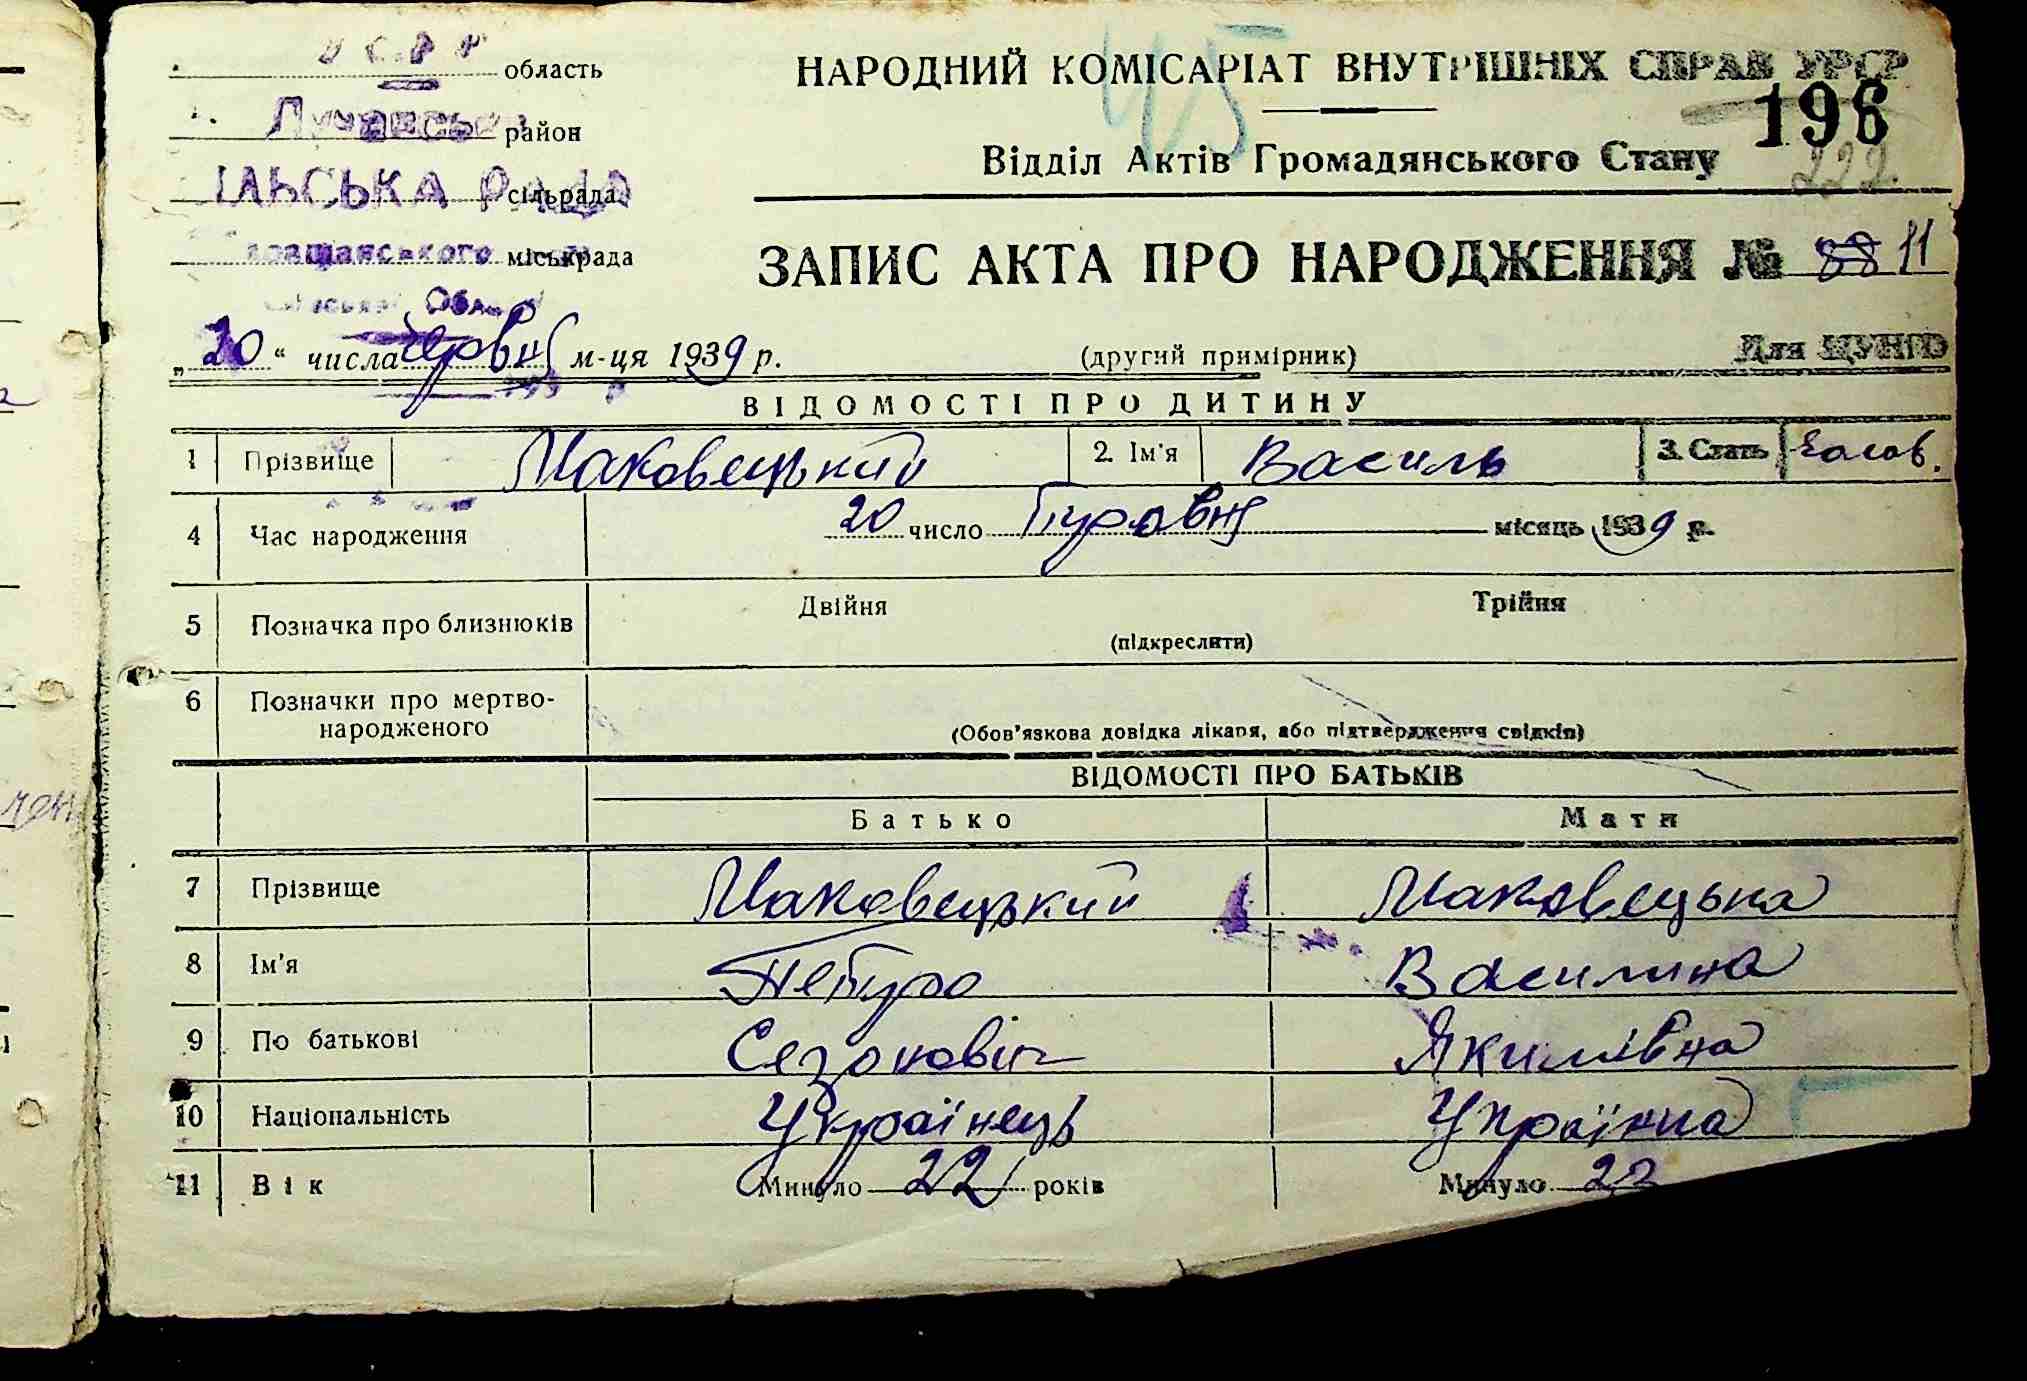 У С Р Р область
район
ІЛЬСЬКА РАДА сільрада
міськрада
Обл.
45
НАРОДНИЙ КОМІСАРІАТ ВНУТРІШНІХ СПРАВ УРСР
196
Відділ Актів Громадянського Стану
222.
ЗАПИС АКТА ПРО НАРОДЖЕННЯ № 88 11
„20“ числа червня м-ця 1939 р.
(другий примірник)
Для ЦУНГО
ВІДОМОСТІ ПРО ДИТИНУ
1 Прізвище Маковецький 2. Ім'я Василь 3. Стать
4 Час народження 20 число місяць 1939 р.
5 Позначка про близнюків Двійня Трійня
(підкреслити)
6 Позначки про мертво-
народженого (Обов'язкова довідка лікаря, або підтвердження свідків)
ВІДОМОСТІ ПРО БАТЬКІВ
Батько Мати
7 Прізвище Маковецький Маковецька
8 Ім'я Василина
9 По батькові Сезонович Якимівна
10 Національність Українець Українка
11 Вік Минуло 22 років Минуло 22